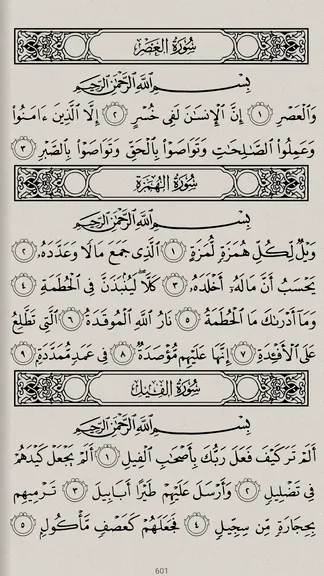 سُورَةُ العَصْرِ
بِسْمِ اللَّهِ الرَّحْمَٰنِ الرَّحِيمِ
وَالْعَصْرِ ١ إِنَّ الْإِنسَانَ لَفِي خُسْرٍ ٢ إِلَّا الَّذِينَ ءَامَنُوا
وَعَمِلُوا الصَّالِحَاتِ وَتَوَاصَوْا بِالْحَقِّ وَتَوَاصَوْا بِالصَّبْرِ ٣
سُورَةُ الهُمَزَةِ
بِسْمِ اللَّهِ الرَّحْمَٰنِ الرَّحِيمِ
وَيْلٌ لِّكُلِّ هُمَزَةٍ لُّمَزَةٍ ١ الَّذِي جَمَعَ مَالًا وَعَدَّدَهُ ٢
يَحْسَبُ أَنَّ مَالَهُ أَخْلَدَهُ ٣ كَلَّا ۖ لَيُنبَذَنَّ فِي الْحُطَمَةِ ٤
وَمَا أَدْرَاكَ مَا الْحُطَمَةُ ٥ نَارُ اللَّهِ الْمُوقَدَةُ ٦ الَّتِي تَطَّلِعُ
عَلَى الْأَفْئِدَةِ ٧ إِنَّهَا عَلَيْهِم مُّؤْصَدَةٌ ٨ فِي عَمَدٍ مُّمَدَّدَةٍ ٩
سُورَةُ الفِيلِ
بِسْمِ اللَّهِ الرَّحْمَٰنِ الرَّحِيمِ
أَلَمْ تَرَ كَيْفَ فَعَلَ رَبُّكَ بِأَصْحَابِ الْفِيلِ ١ أَلَمْ يَجْعَلْ كَيْدَهُمْ
فِي تَضْلِيلٍ ٢ وَأَرْسَلَ عَلَيْهِمْ طَيْرًا أَبَابِيلَ ٣ تَرْمِيهِم
بِحِجَارَةٍ مِّن سِجِّيلٍ ٤ فَجَعَلَهُمْ كَعَصْفٍ مَّأْكُولٍ ٥
601